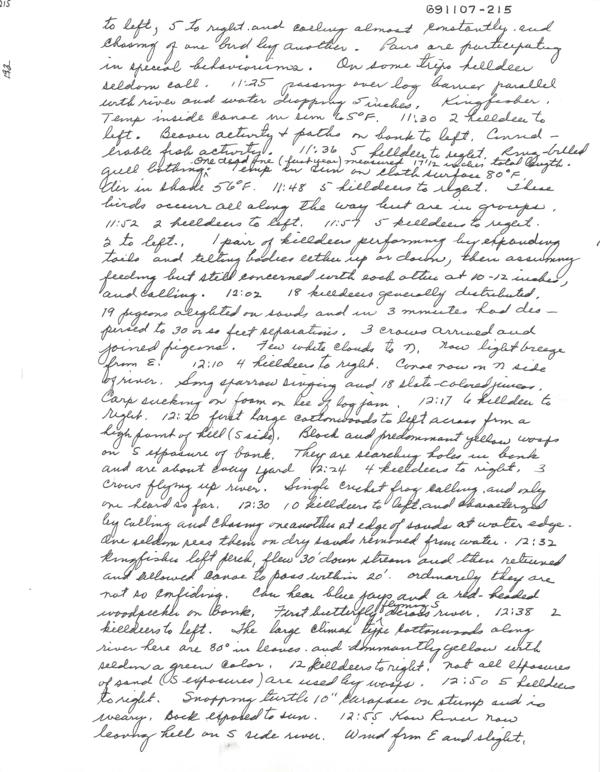 215
691107-215
192
to left, 5 to right and calling almost constantly and
chasing of one bird by another. Pairs are participating
in special behaviorisms. On some trips killdeer
seldom call. 11:25 passing over log barrier parallel
with river and water dropping 5 inches. Kingfisher.
Temp inside canoe in sun 65°F. 11:30 2 killdeer to
left. Beaver activity & paths on bank to left. Consid-
erable fish activity. 11:36 5 killdeer to right. Ring-billed
gull bathing. Temp in sun on cloth surface 80°F.
One dead one (first year) measured 17 1/2 inches total length.
Air in shade 56°F. 11:48 5 killdeers to right. These
birds occur all along the way but are in groups.
11:52 2 killdeers to left. 11:57 5 killdeers to right.
2 to left. 1 pair of killdeers performing by expanding
tails and tilting bodies either up or down, then assuming
feeding but still concerned with each other at 10-12 inches,
and calling. 12:02 18 killdeers generally distributed.
19 pigeons alighted on sands and in 3 minutes had dis-
persed to 30 or so feet separations. 3 crows arrived and
joined pigeons. Few white clouds to N, now light breeze
from E. 12:10 4 killdeers to right. Canoe now on N side
of river. Song sparrow singing and 18 slate-colored juncos.
Carp sucking on foam on lee of log jam. 12:17 6 killdeer to
right. 12:20 first large cottonwoods to left across from a
high point of hill (S side). Black and predominant yellow wasps
on S exposure of bank. They are searching holes in bank
and are about every yard 12:24 4 killdeers to right. 3
crows flying up river. Single cricket frog calling and only
one heard so far. 12:30 10 killdeers to left and characterized
by calling and chasing one another at edge of sands at water edge.
One seldom sees them on dry sands removed from water. 12:32
kingfisher left perch, flew 30' down stream and then returned
and allowed canoe to pass within 20'. ordinarily they are
not so confiding. Can hear blue jays and a red-headed
woodpecker on bank. First butterfly flying S across river. 12:38 2
killdeers to left. The large climax type cottonwoods along
river here are 80° in leaves and dominantly yellow with
seldom a green color. 12 killdeers to right. not all exposures
of sand (S exposures) are used by wasps. 12:50 5 killdeers
to right. Snapping turtle 10" carapace on stump and is
weary. Back exposed to sun. 12:55 Kaw River now
leaving hill on S side river. Wind from E and slight.